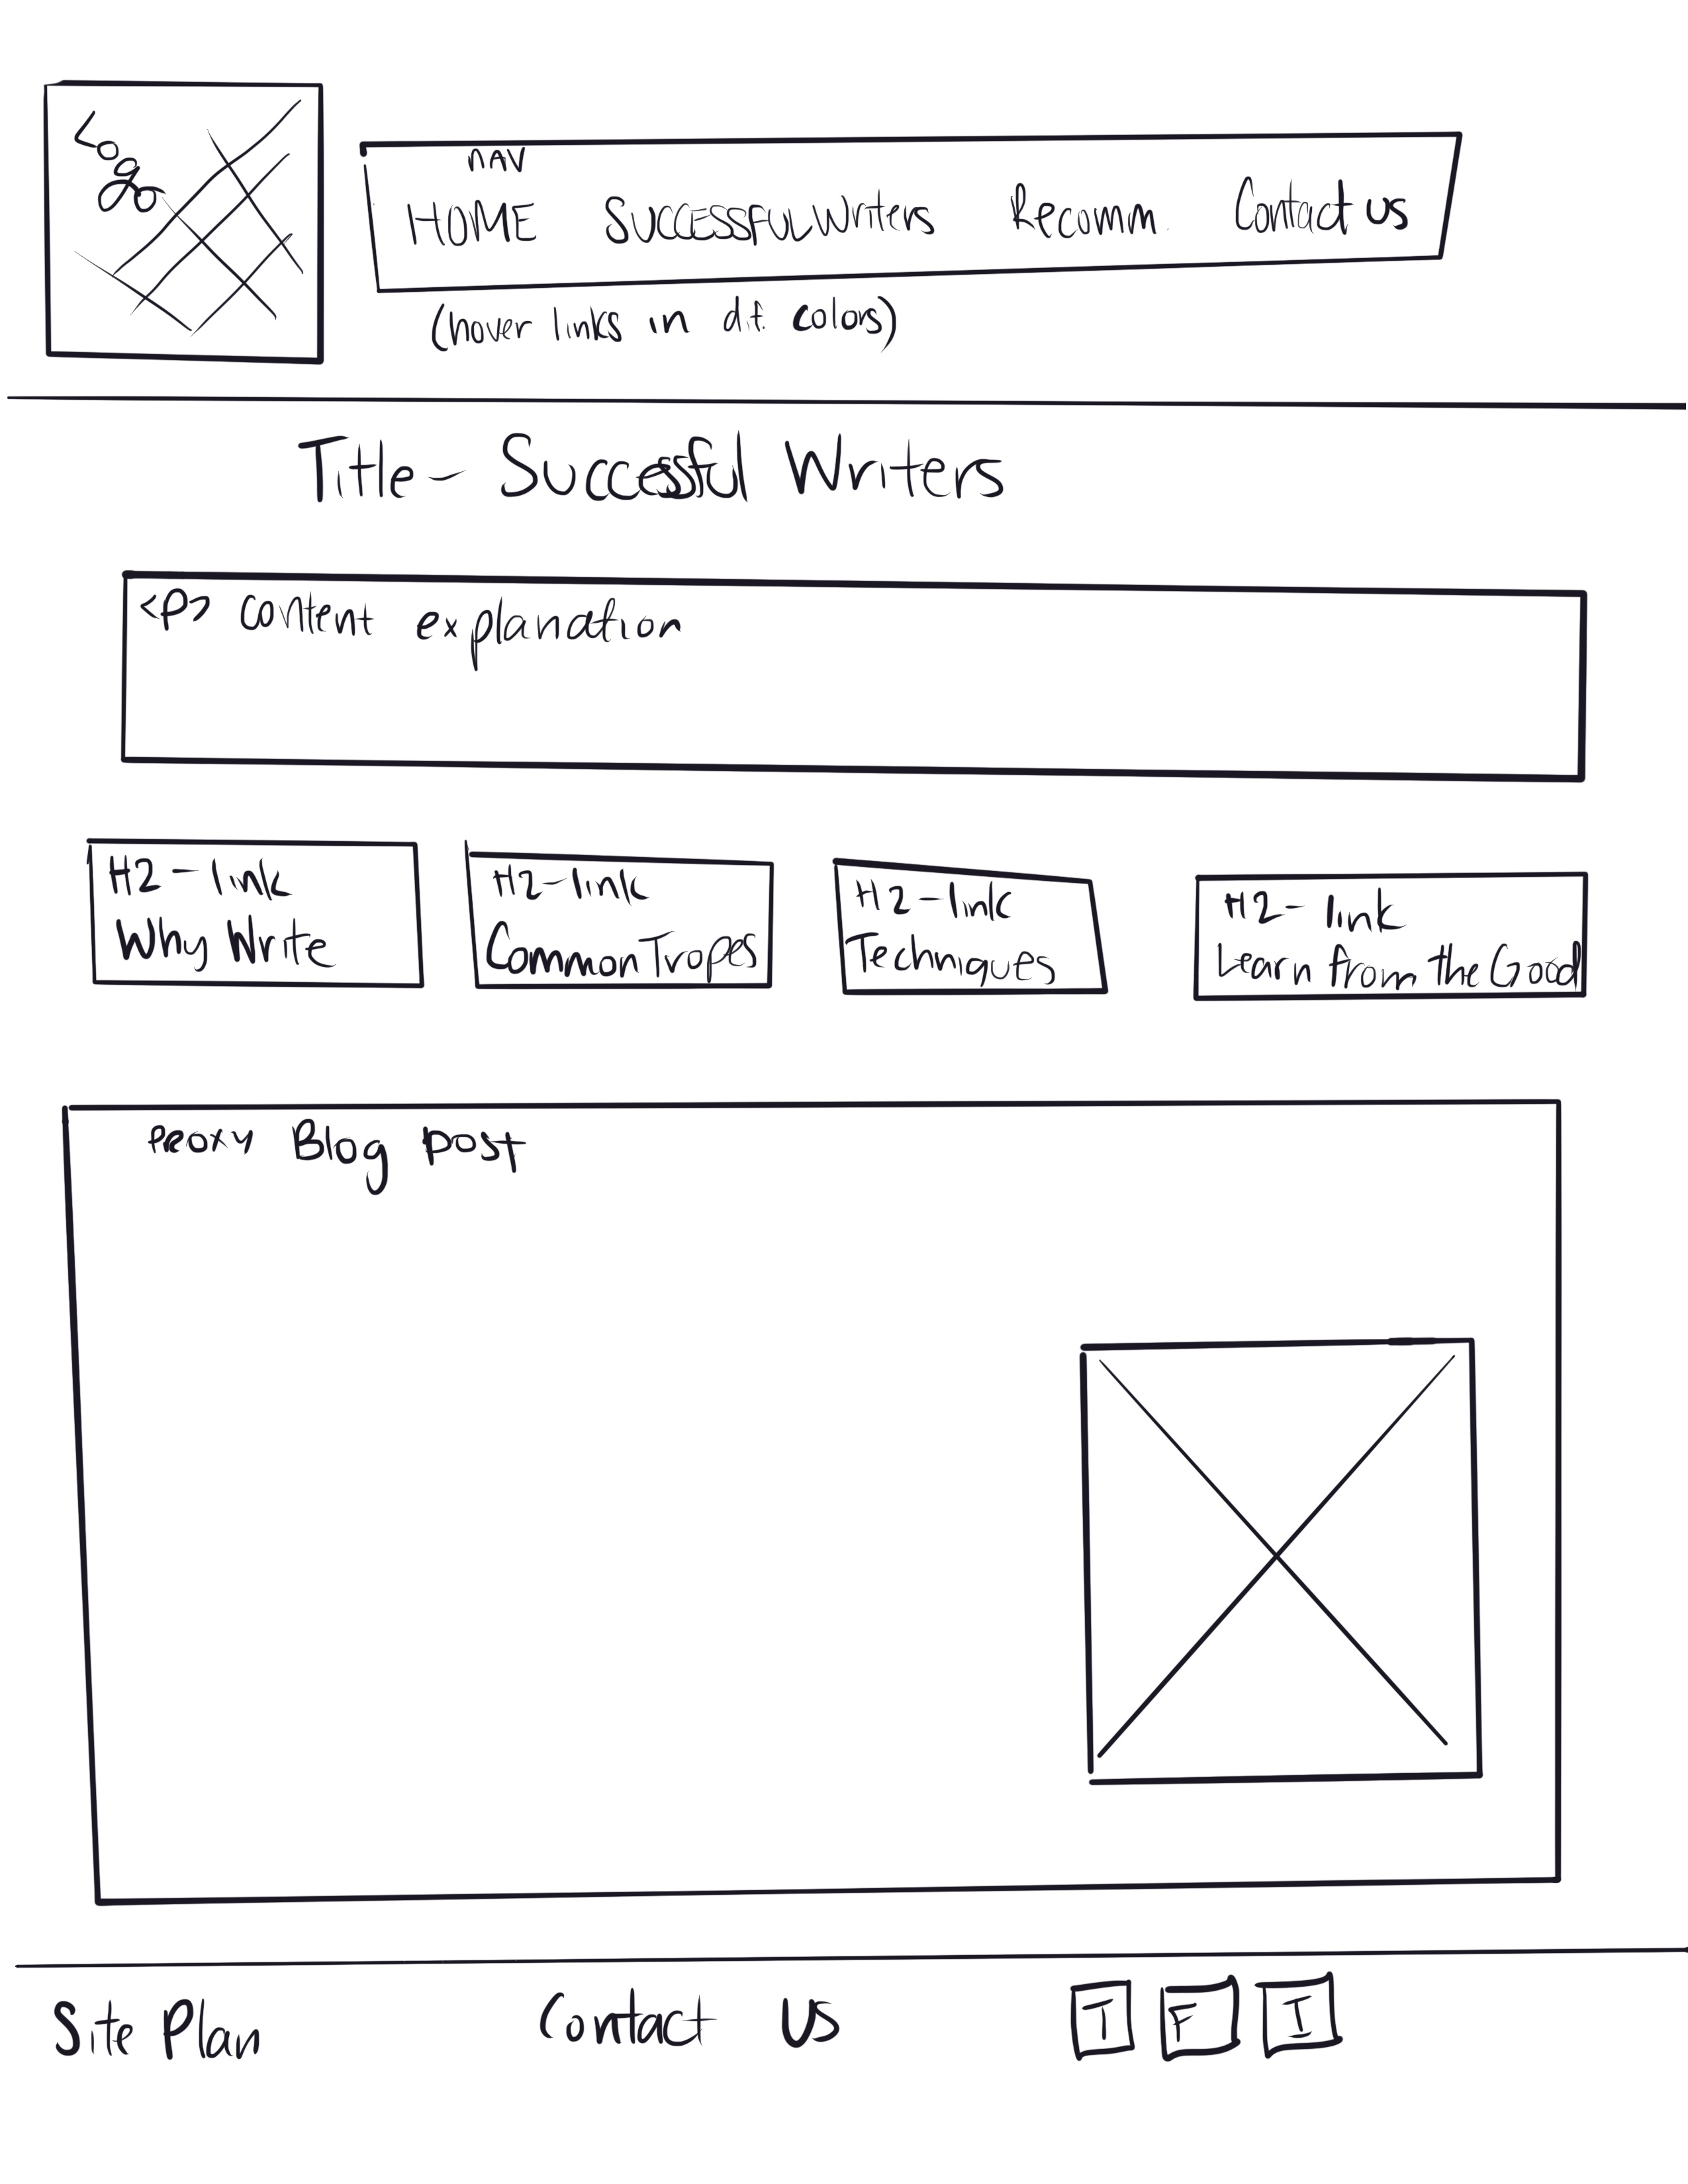 Logo
nav
HOME Successful Writers Recomm. Contact us
(hover links in dif. colors)
Title - Successful Writers
<P> Content explanation
H2 - link
Why Write
H2 - link
Common Tropes
H2 - link
Techniques
H2 - link
Learn from the Good
Blog post
Site Plan Contact Us T F I